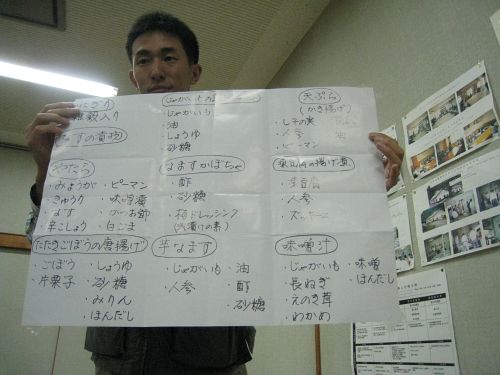 雑穀入り
なすの漬物
やったら
・みょうが
・きゅうり
・なす
・辛こしょう
・ピーマン
・味噌漬
・かつお節
・白ごま
たたきごぼうの唐揚げ
・ごぼう
・片栗子
・しょうゆ
・砂糖
・みりん
・ほんだし
・じゃがいも
・油
・しょうゆ
・砂糖
なますかぼちゃ
・酢
・砂糖
・ドレッシング
(浅漬けの素)
芋なます
・じゃがいも
・人参
油
酢
砂糖
天ぷら
(かき揚げ)
・しその実
・人参
・ピーマン
油
の揚げ漬
・豆腐
・人参
・ズッキーニ
味噌汁
・じゃがいも
・長ねぎ
・えのき茸
・わかめ
・味噌
・ほんだし